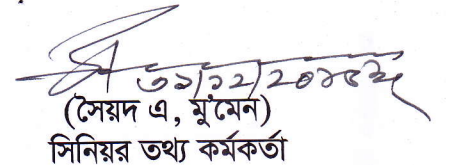 ৩১/১২/২০১৫ইং
(সৈয়দ এ, মু'মেন)
সিনিয়র তথ্য কর্মকর্তা